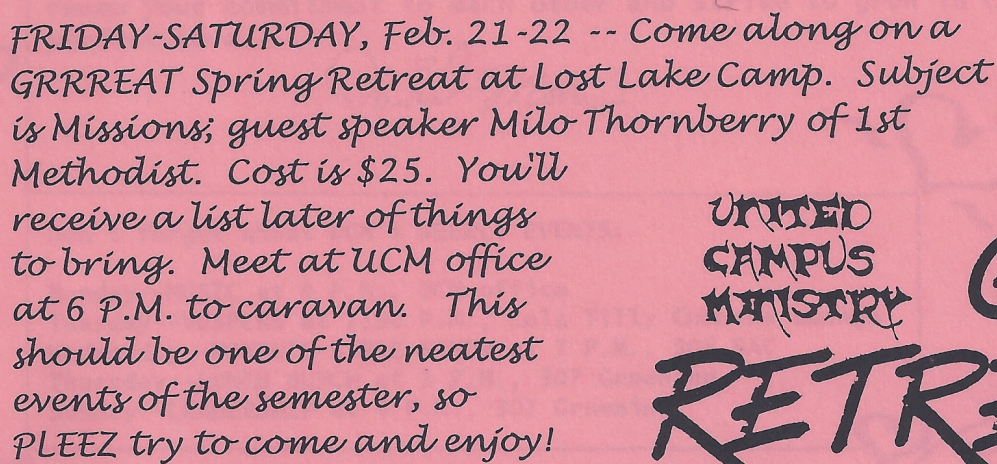 FRIDAY-SATURDAY, Feb. 21-22 -- Come along on a
GRRREAT Spring Retreat at Lost Lake Camp. Subject
is Missions; guest speaker Milo Thornberry of 1st
Methodist. Cost is $25. You'll
receive a list later of things
to bring. Meet at UCM office
at 6 P.M. to caravan. This
should be one of the neatest
events of the semester, so
PLEEZ try to come and enjoy!
UNITED
CAMPUS
MINISTRY
RETRE